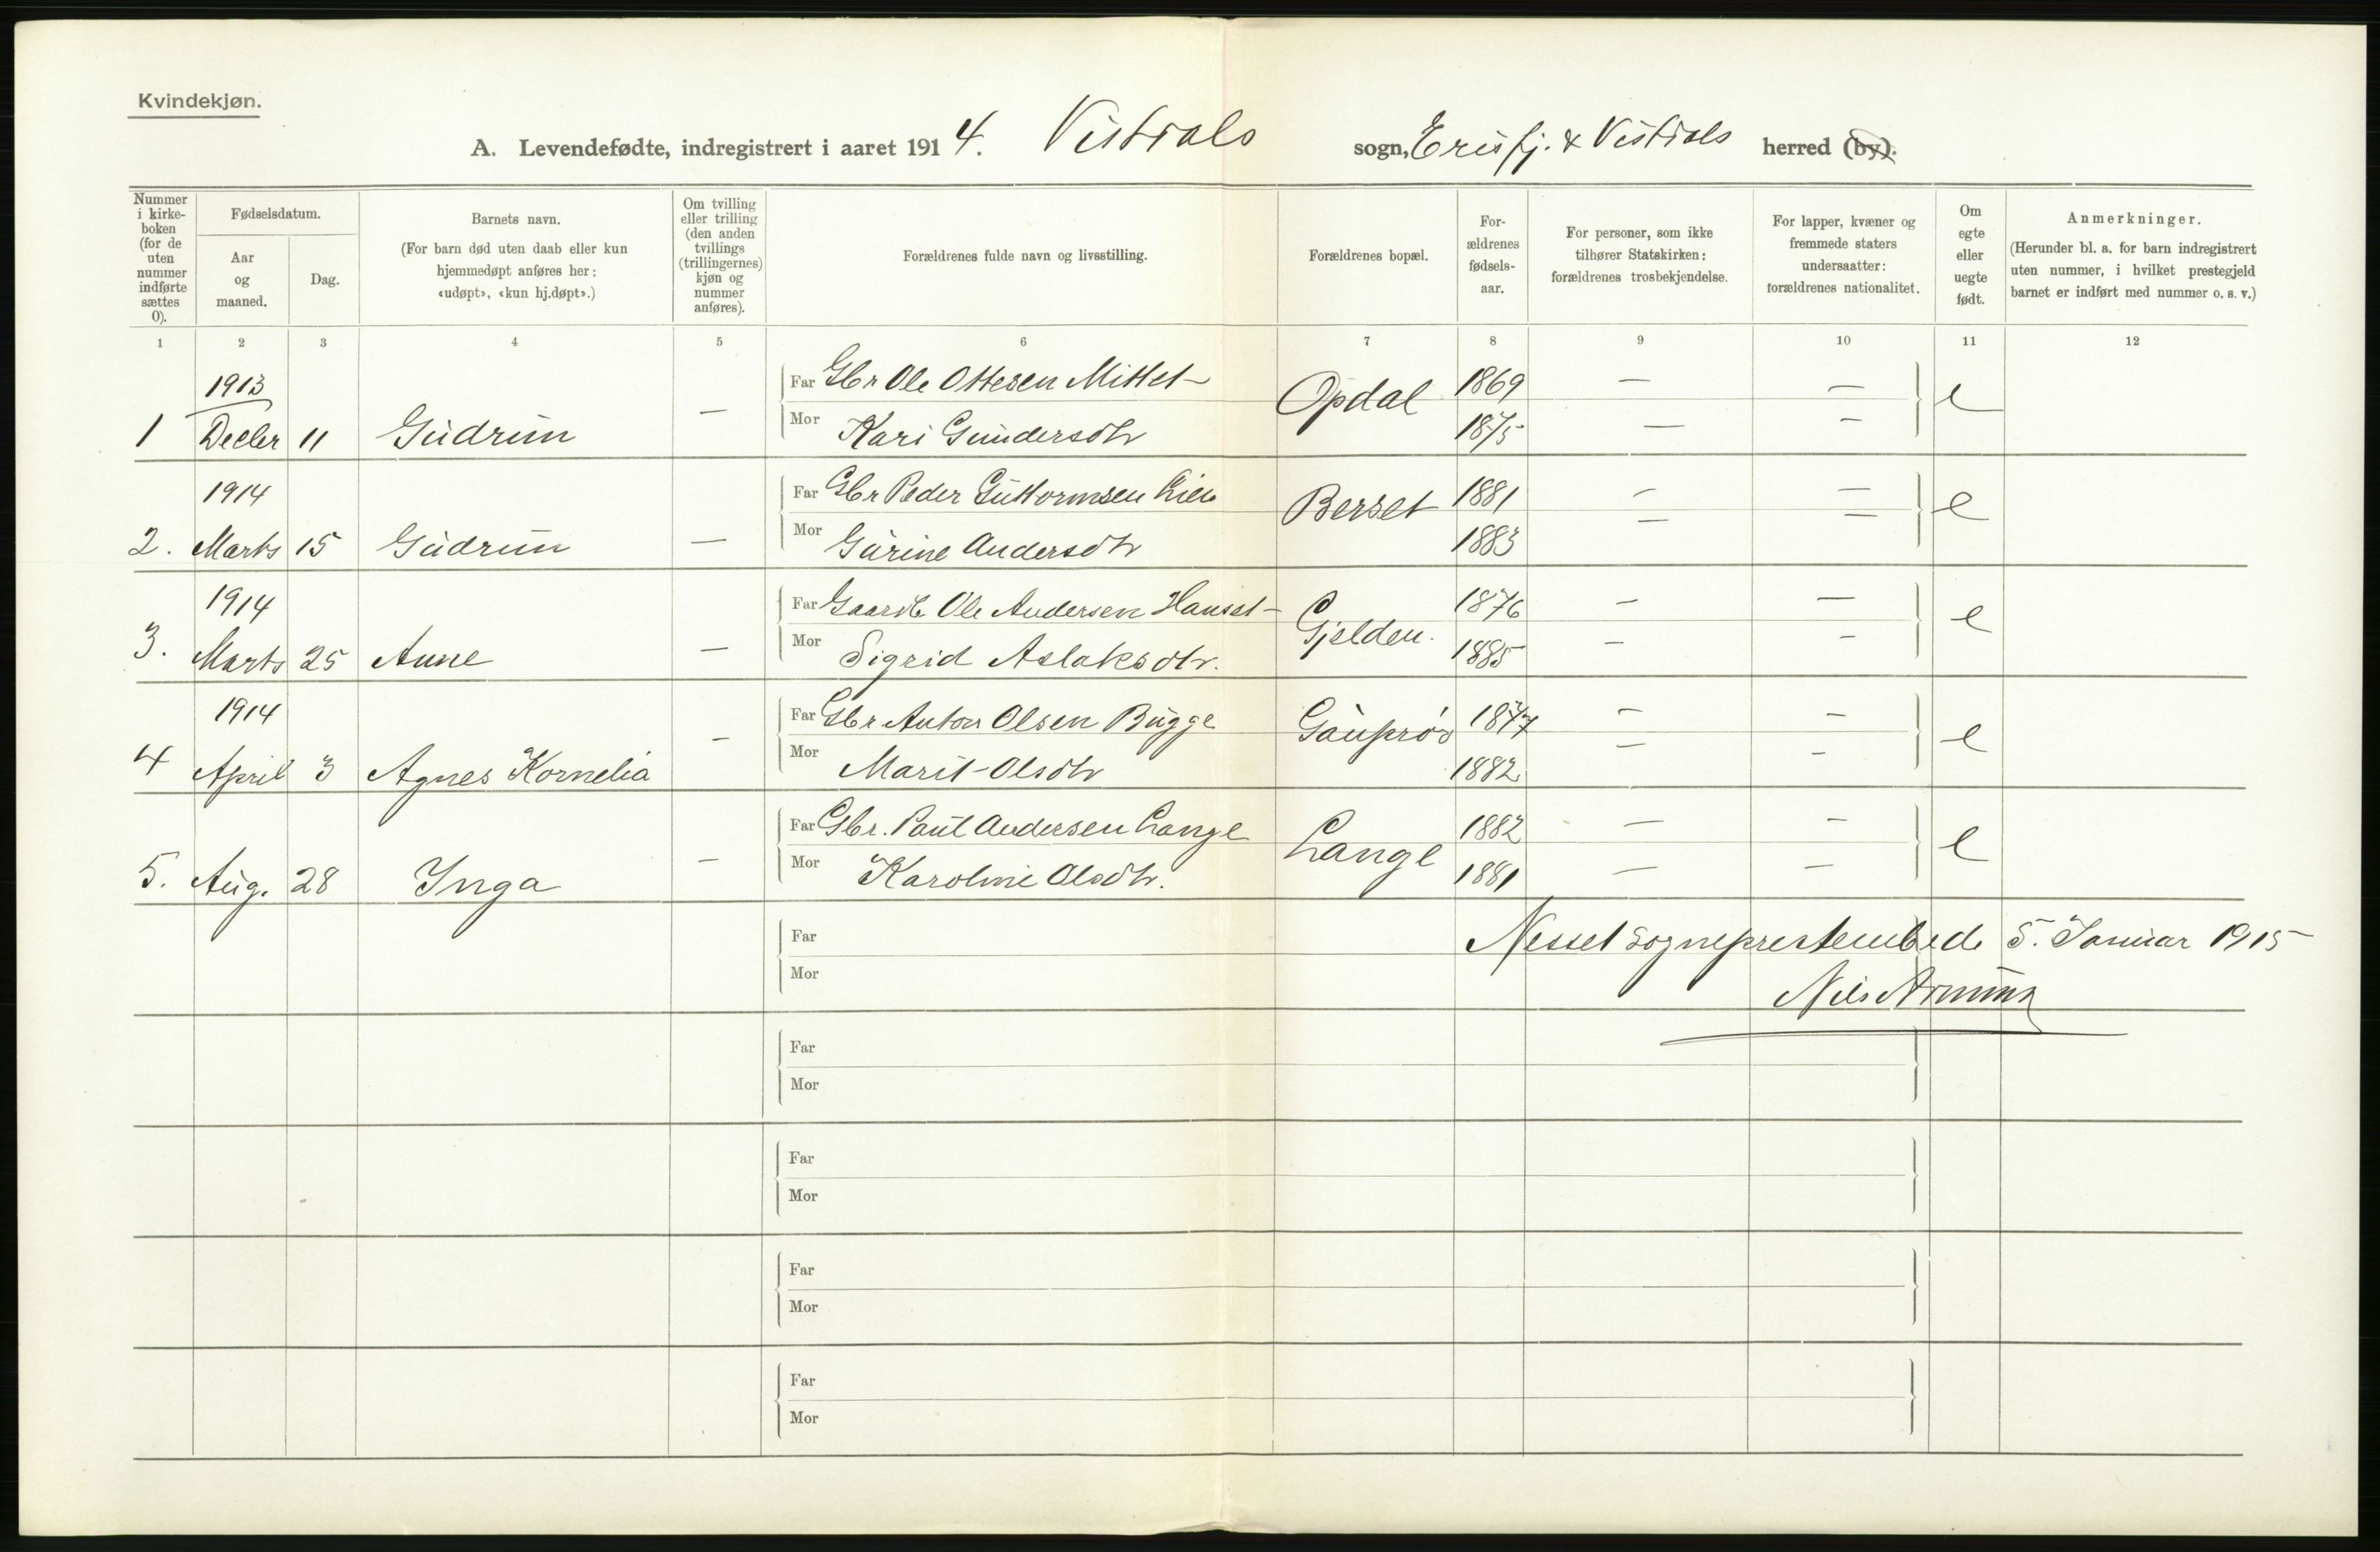 Kvindekjøn.
A. Levendefødte, indregistrert i aaret 1914. Vistdals sogn, Erisfj. & Vistdals herred (by).
Nummer i kirke-boken (for de uten nummer indførte sættes 0).
Fødselsdatum.
Aar og maaned.
Dag.
Barnets navn.
(For barn død uten daab eller kun hjemmedøpt anføres her: «udøpt», «kun hj.døpt».)
Om tvilling eller trilling (den anden tvillings (trillingernes) kjøn og nummer anføres).
Forældrenes fulde navn og livsstilling.
Forældrenes bopæl.
For-ældrenes fødsels-aar.
For personer, som ikke tilhører Statskirken: forældrenes trosbekjendelse.
For lapper, kvæner og fremmede staters undersaatter: forældrenes nationalitet.
Om egte eller uegte født.
Anmerkninger.
(Herunder bl. a. for barn indregistrert uten nummer, i hvilket prestegjeld barnet er indført med nummer o. s. v.)
1 2 3 4 5 6 7 8 9 10 11 12
1913 Far Gbr Ole Ottesen Mittet Opdal 1869 — — e
1 Decbr 11 Gudrun — Mor Kari Gundersdtr 1875 — —
1914 Far Gbr Peder Guttormsen Lien Berset 1881 — — e
2. Marts 15 Gudrun — Mor Gurine Andersdtr 1883 — —
1914 Far Gaardb Ole Andersen Hauset Gjelden. 1876 — — e
3. Marts 25 Anne — Mor Sigrid Aslaksdtr. 1885 — —
1914 Far Gbr Anton Olsen Bugge Gauprør 1877 — — e
4 April 3 Agnes Kornelia — Mor Marit Olsdtr 1882 — —
Far Gbr. Paul Andersen Lange Lange 1882 — — e
5. Aug. 28 Inga — Mor Karoline Olsdtr. 1881 — —
Far Nesset sogneprestembede 5. Januar 1915
Mor Nils
Far
Mor
Far
Mor
Far
Mor
Far
Mor